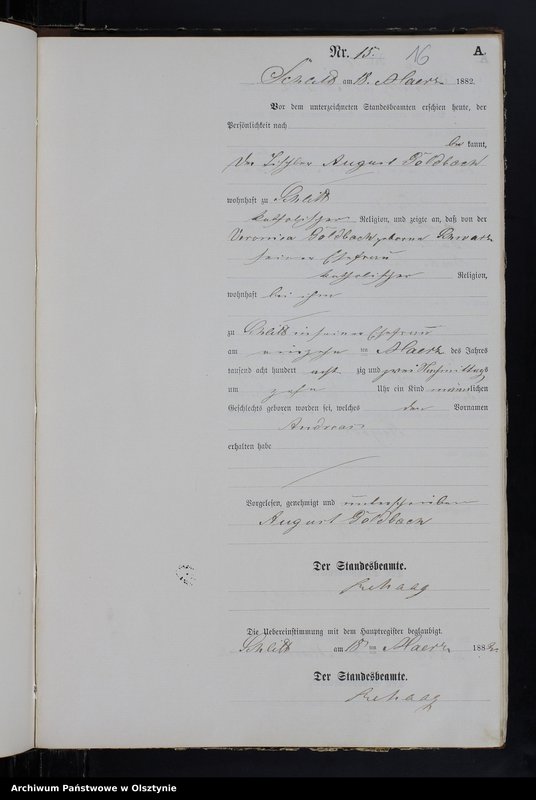 Nr. 15. 16 A
Schlitt am 18. Maerz 1882.
Vor dem unterzeichneten Standesbeamten erschien heute, der
Persönlichkeit nach
be kannt,
Der Tischler August Goldbach
wohnhaft zu Schlitt
katholischer Religion, und zeigte an, daß von der
Veronica Goldbach geborene
seiner Ehefrau
katholischer Religion,
wohnhaft bei ihm
zu Schlitt in seiner
am ten Maerz des Jahres
tausend acht hundert acht zig und zwei Nachmittags
um zehn Uhr ein Kind männlichen
Geschlechts geboren worden sei, welches den Vornamen
Andreas
erhalten habe
Vorgelesen, genehmigt und unterschrieben
August Goldbach
Der Standesbeamte.
Rehaag
Die Uebereinstimmung mit dem Hauptregister beglaubigt.
Schlitt am 18 ten Maerz 1882.
Der Standesbeamte.
Rehaag
Archiwum Państwowe w Olsztynie